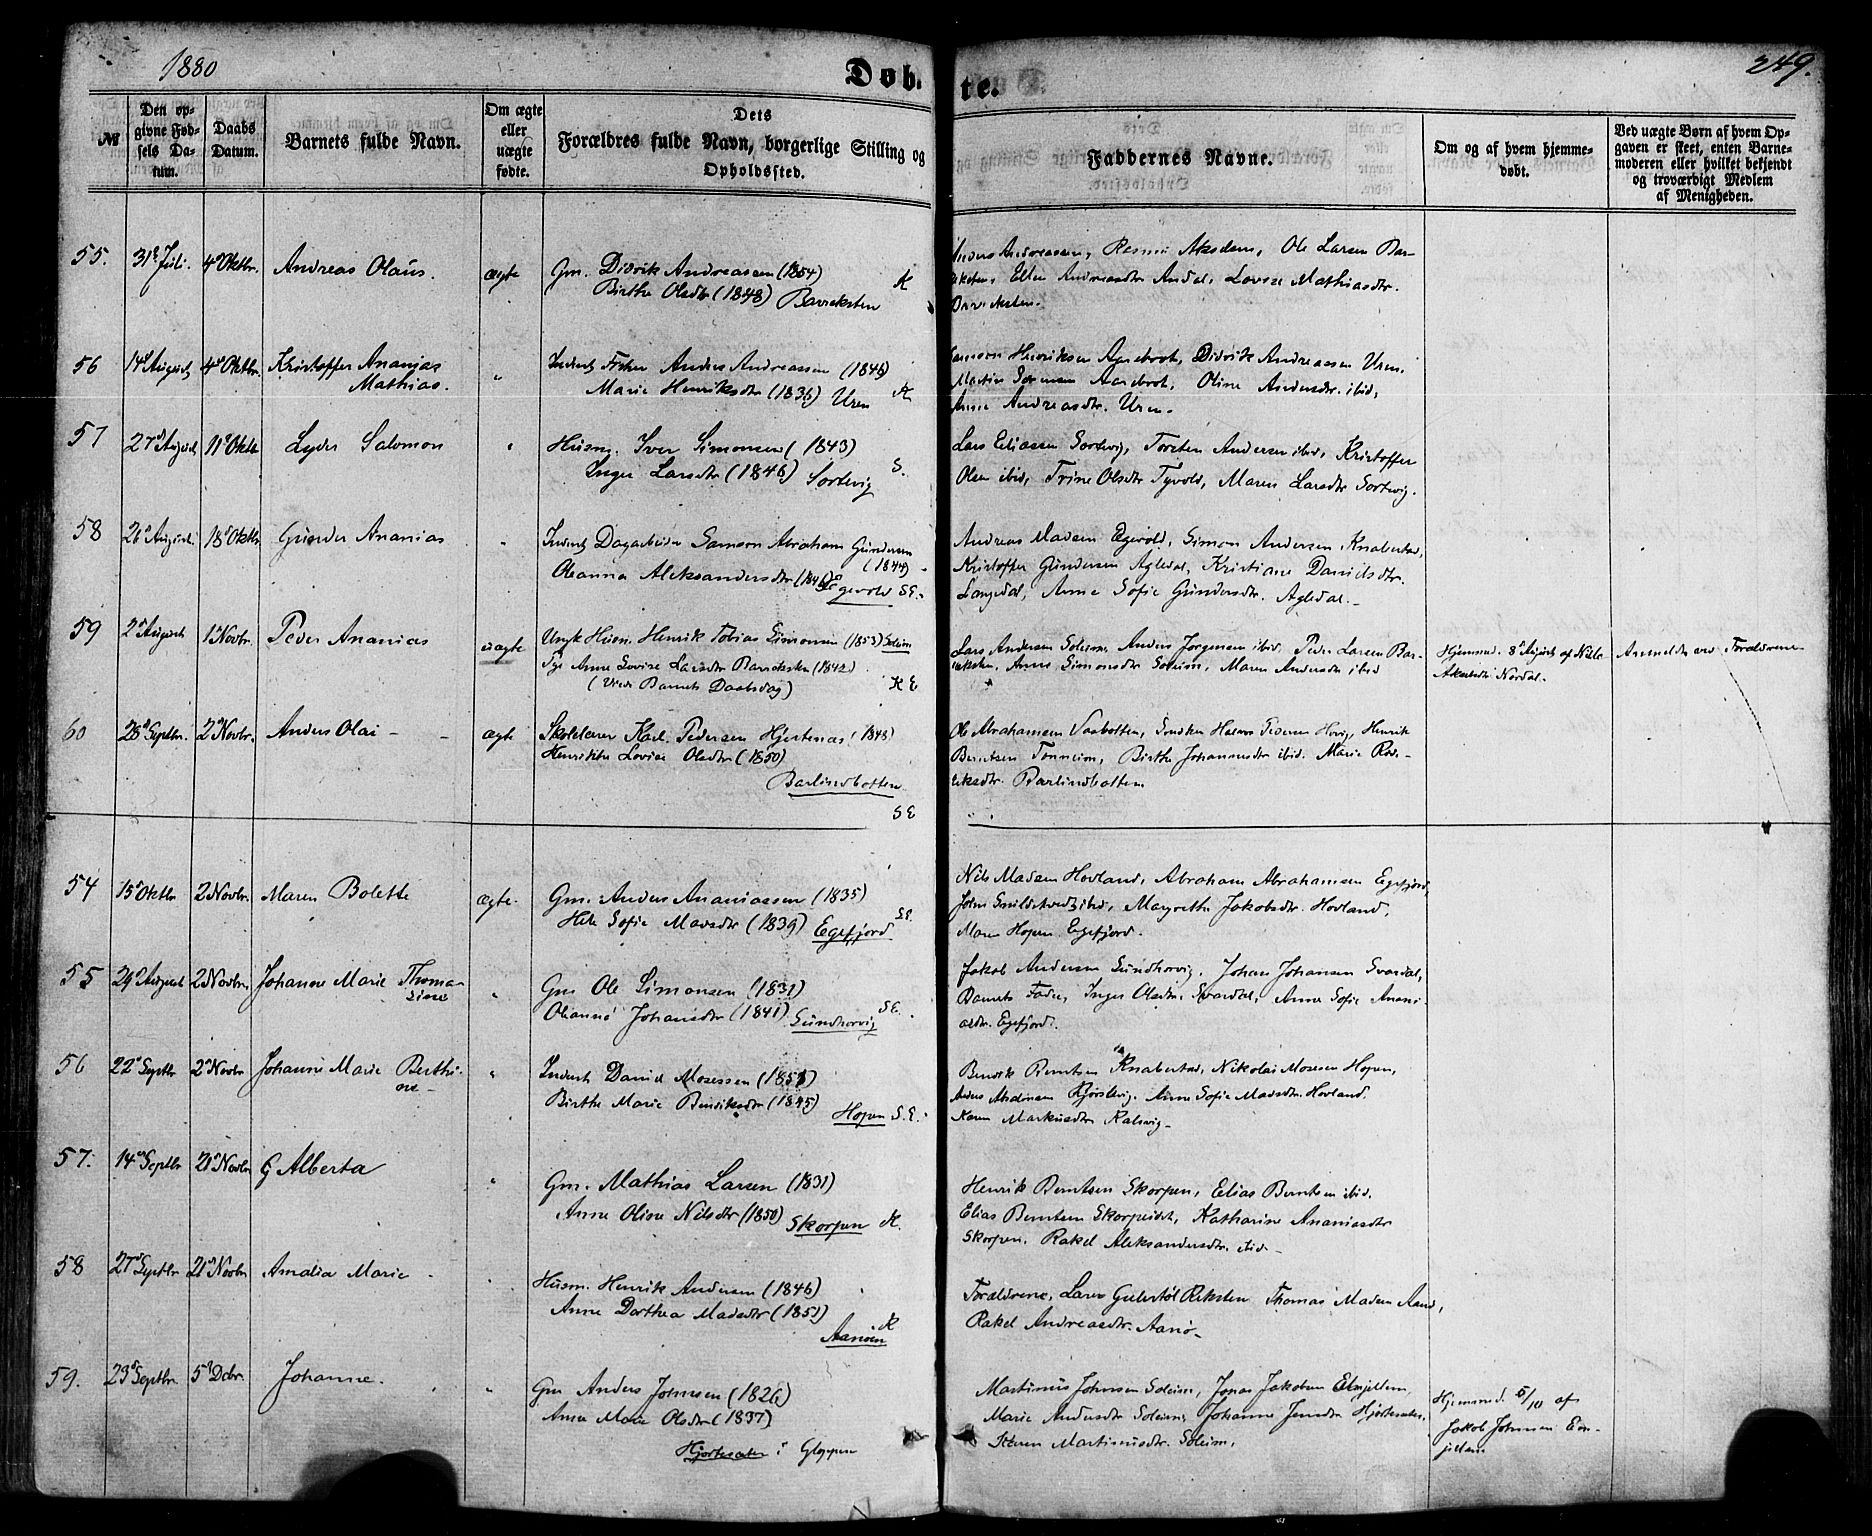 1880
Døbte.
249.
№
Den opgivne Fødsels Datum.
Daabs Datum.
Barnets fulde Navn.
Om ægte eller uægte fødte.
Dets Forældres fulde Navn, borgerlige Stilling og Opholdssted.
Faddernes Navne.
Om og af hvem hjemmedøbt.
Ved uægte Børn af hvem Opgaven er skeet, enten Barnemoderen eller hvilket bekjendt og troværdigt Medlem af Menigheden.
55. 31te Juli. 4de Oktbr. Andreas Olaus. ægte
Gm. Didrik Andreassen (1854)
Birthe Olsdtr (1848) Barreksten K
Anders Andreassen, Rasmus Aksdem, Ole Larsen Bar-
reksten, Ellen Andreasdtr Ausdal, Lovise Mathiasdtr.
Barreksten.
56 14de August 4de Oktbr. Kristoffer Ananias
Mathias. "
Inderst Fisker Anders Andreassen (1846)
Marie Henriksdtr (1836) Uren K
Samson Henriksen Aarebrot, Didrik Andreassen Uren,
Martin Sørensen Aarebrot, Oline Andersdtr. ibid,
Anne Andreasdtr. Uren.
57 27de August 11te Oktbr Lyder Salomon "
Husm. Iver Simonsen (1843)
Inger Larsdtr (1846) Sortevig S.
Lars Eliassen Sortevig, Torsten Andersen ibid, Kristoffer
Olsen ibid, Trine Olsdtr Tyvold, Maren Larsdtr Sortevig.
58 26de August. 18de Oktbr. Gunder Ananias "
Inderst Dagarbeider Samson Abraham Gundersen
(1844)
Oleanna Aleksandersdtr (1846) Egevold S.E.
Andreas Madsen Egevold, Simon Andersen Knabestad,
Kristoffer Gundersen Agledal, Kristiane Danielsdtr.
Langedal, Anne Sofie Gundersdtr. Agledal.
59 2den August 1ste Novbr. Peder Ananias uægte
Ungk Husm. Henrik Tobias Simonsen (1853) Soleim
Pige Anne Lovise Larsdtr Barreksten (1842)
(Viede Barnets Daabsdag) K E
Lars Andersen Soleim, Anders Jørgensen ibid, Peder Larsen Bar-
reksten, Anne Simonsdtr Soleim, Maren Andersdtr ibid
Hjemmed. 8de August af Nils
Nordal.
Anmeldt ved Forældrene
60 28de Septbr. 2den Novbr. Anders Olai ægte
Skolelærer Karl Pedersen Hjertenæs (1848)
Henrikke Lovise Olsdtr (1850)
Barlindbotten
S E
Ole Abrahamsen Vasbotten, Halvor Pedersen Hovig, Henrik
Berntsen Tonneim, Birthe Johannesdtr ibid. Marie Rode-
riksdtr. Barlindbotten.
54 15de Oktbr 2den Novbr. Maren Bolette ægte.
Gm. Anders Ananiassen (1835)
Hele Sofie Madsdtr (1839) Egefjord S.E.
Nils Madsen Hovland, Abraham Abrahamsen Egefjord,
ibid, Margrethe Jakobsdtr. Hovland,
Maren Hopen, Egefjord.
55 29de August 2den Novbr. Johanne Marie Thoma-
sine "
Gm Ole Simonsen (1831)
Oleanna Johansdtr (1841) Sundhorvig S.E.
Jakob Andersen Sundhorvig. Johan Johansen Svardal,
Barnets Fader, Inger Olsdtr. Svardal, Anne Sofie Anani-
asdtr. Egefjord.
56 22de Septbr 2den Novbr Johanne Marie Berthi-
ne "
Inderst David Mosessen (1851)
Birthe Marie Bendiksdtr (1845) Hopen S.E.
Bendik Berntsen Knabestad, Nikolai Mosesen Hopen,
Anders Hjørslevig, Anne Sofie Madsdtr. Hovland.
Karen Markusdtr Kalsvig
57. 14de Septbr 21de Novbr Alberta "
Gm. Mathias Larsen (1831)
Anne Oline Nilsdtr (1850) Skorpen K.
Henrik Berntsen Skorpen, Elias Berntsen ibid.
Elias Berntsen Skorpeidet, Katharine Ananiasdtr
Skorpen, Rakel Aleksandersdtr. ibid
58 27de Septbr 21de Novbr Amalia Marie "
Husm. Henrik Andersen (1846)
Anne Dorthea Madsdtr (1851)
Aanøen K
Forældrene, Reksten Thomas Madsen Aanø,
Rakel Andreasdtr. Aanø
59. 23de Septbr. 5te Decbr. Johanne. "
Gm Anders Johnsen (1826)
Anne Marie Olsdtr (1837)
Hjortesæter i Gloppen
Martinus Johnsen Soleim, Jonas Jakobsen Eimjellem,
Marie Andersdtr Soleim, Johanne Jensdtr Hjortesæter,
Martinusdtr. Soleim.
Hjemmed. 5/10 af
Jakob Johnsen Eim-
jellem